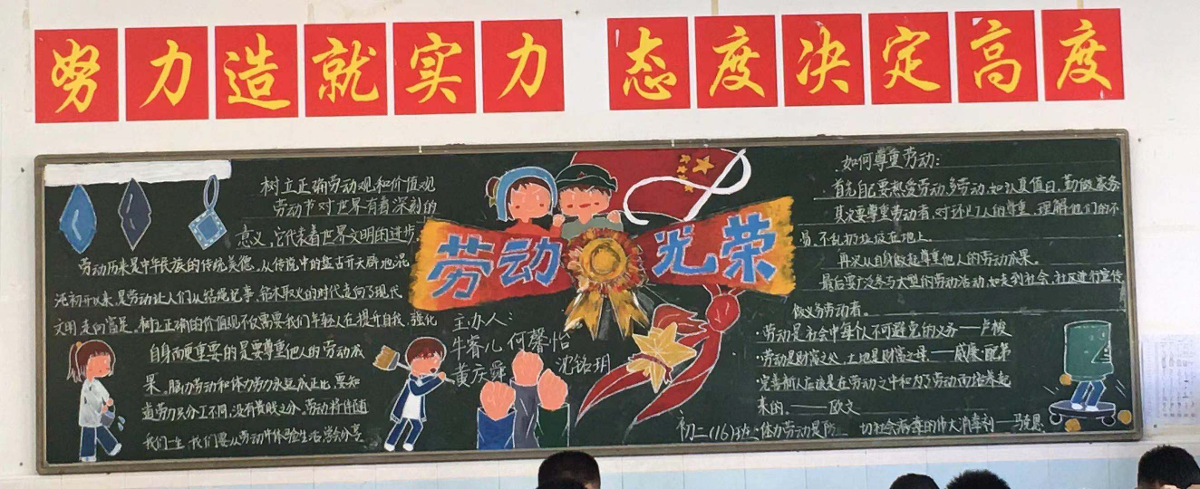 努力造就实力 态度决定高度
树立正确劳动观和价值观
劳动节对世界有着深刻的
意义,它代表着世界文明的进步
劳动历来是中华民族的传统美德,从传说中的盘古开天辟地混
沌初开以来,是劳动让人们从结绳记事,钻木取火的时代走向了现代
文明,走向富足。树立正确的价值观不仅需要我们年轻人在提升自我,强化
自身而更重要的是要尊重他人的劳动成
果。脑力劳动和体力劳力永远成正比,要知
道劳力只分工不同,没有贵贱之分,劳动将伴随
我们一生,我们要从劳动中体验生活,学会分享
劳动光荣
主办人:
牛睿儿 何馨怡
黄庆舜 沈铭玥
如何尊重劳动:
首先自己要热爱劳动,多劳动,如认真值日,勤做家务
其次要尊重劳动者,对环卫工人的尊重,理解他们的不
易,不乱扔垃圾在地上
再次从自身做起尊重他人的劳动成果。
最后要广泛参与大型的劳动活动,如走到社会,社区进行宣传
做义务劳动者。
·劳动是社会中每个人不可避免的义务——卢梭
·劳动是财富之父,土地是财富之母——威廉·配第
完善新人应该是在劳动之中和为了劳动而培养起
来的。——欧文
初二(16)班·体力劳动是防 一切社会病毒的伟大消毒剂——马克思